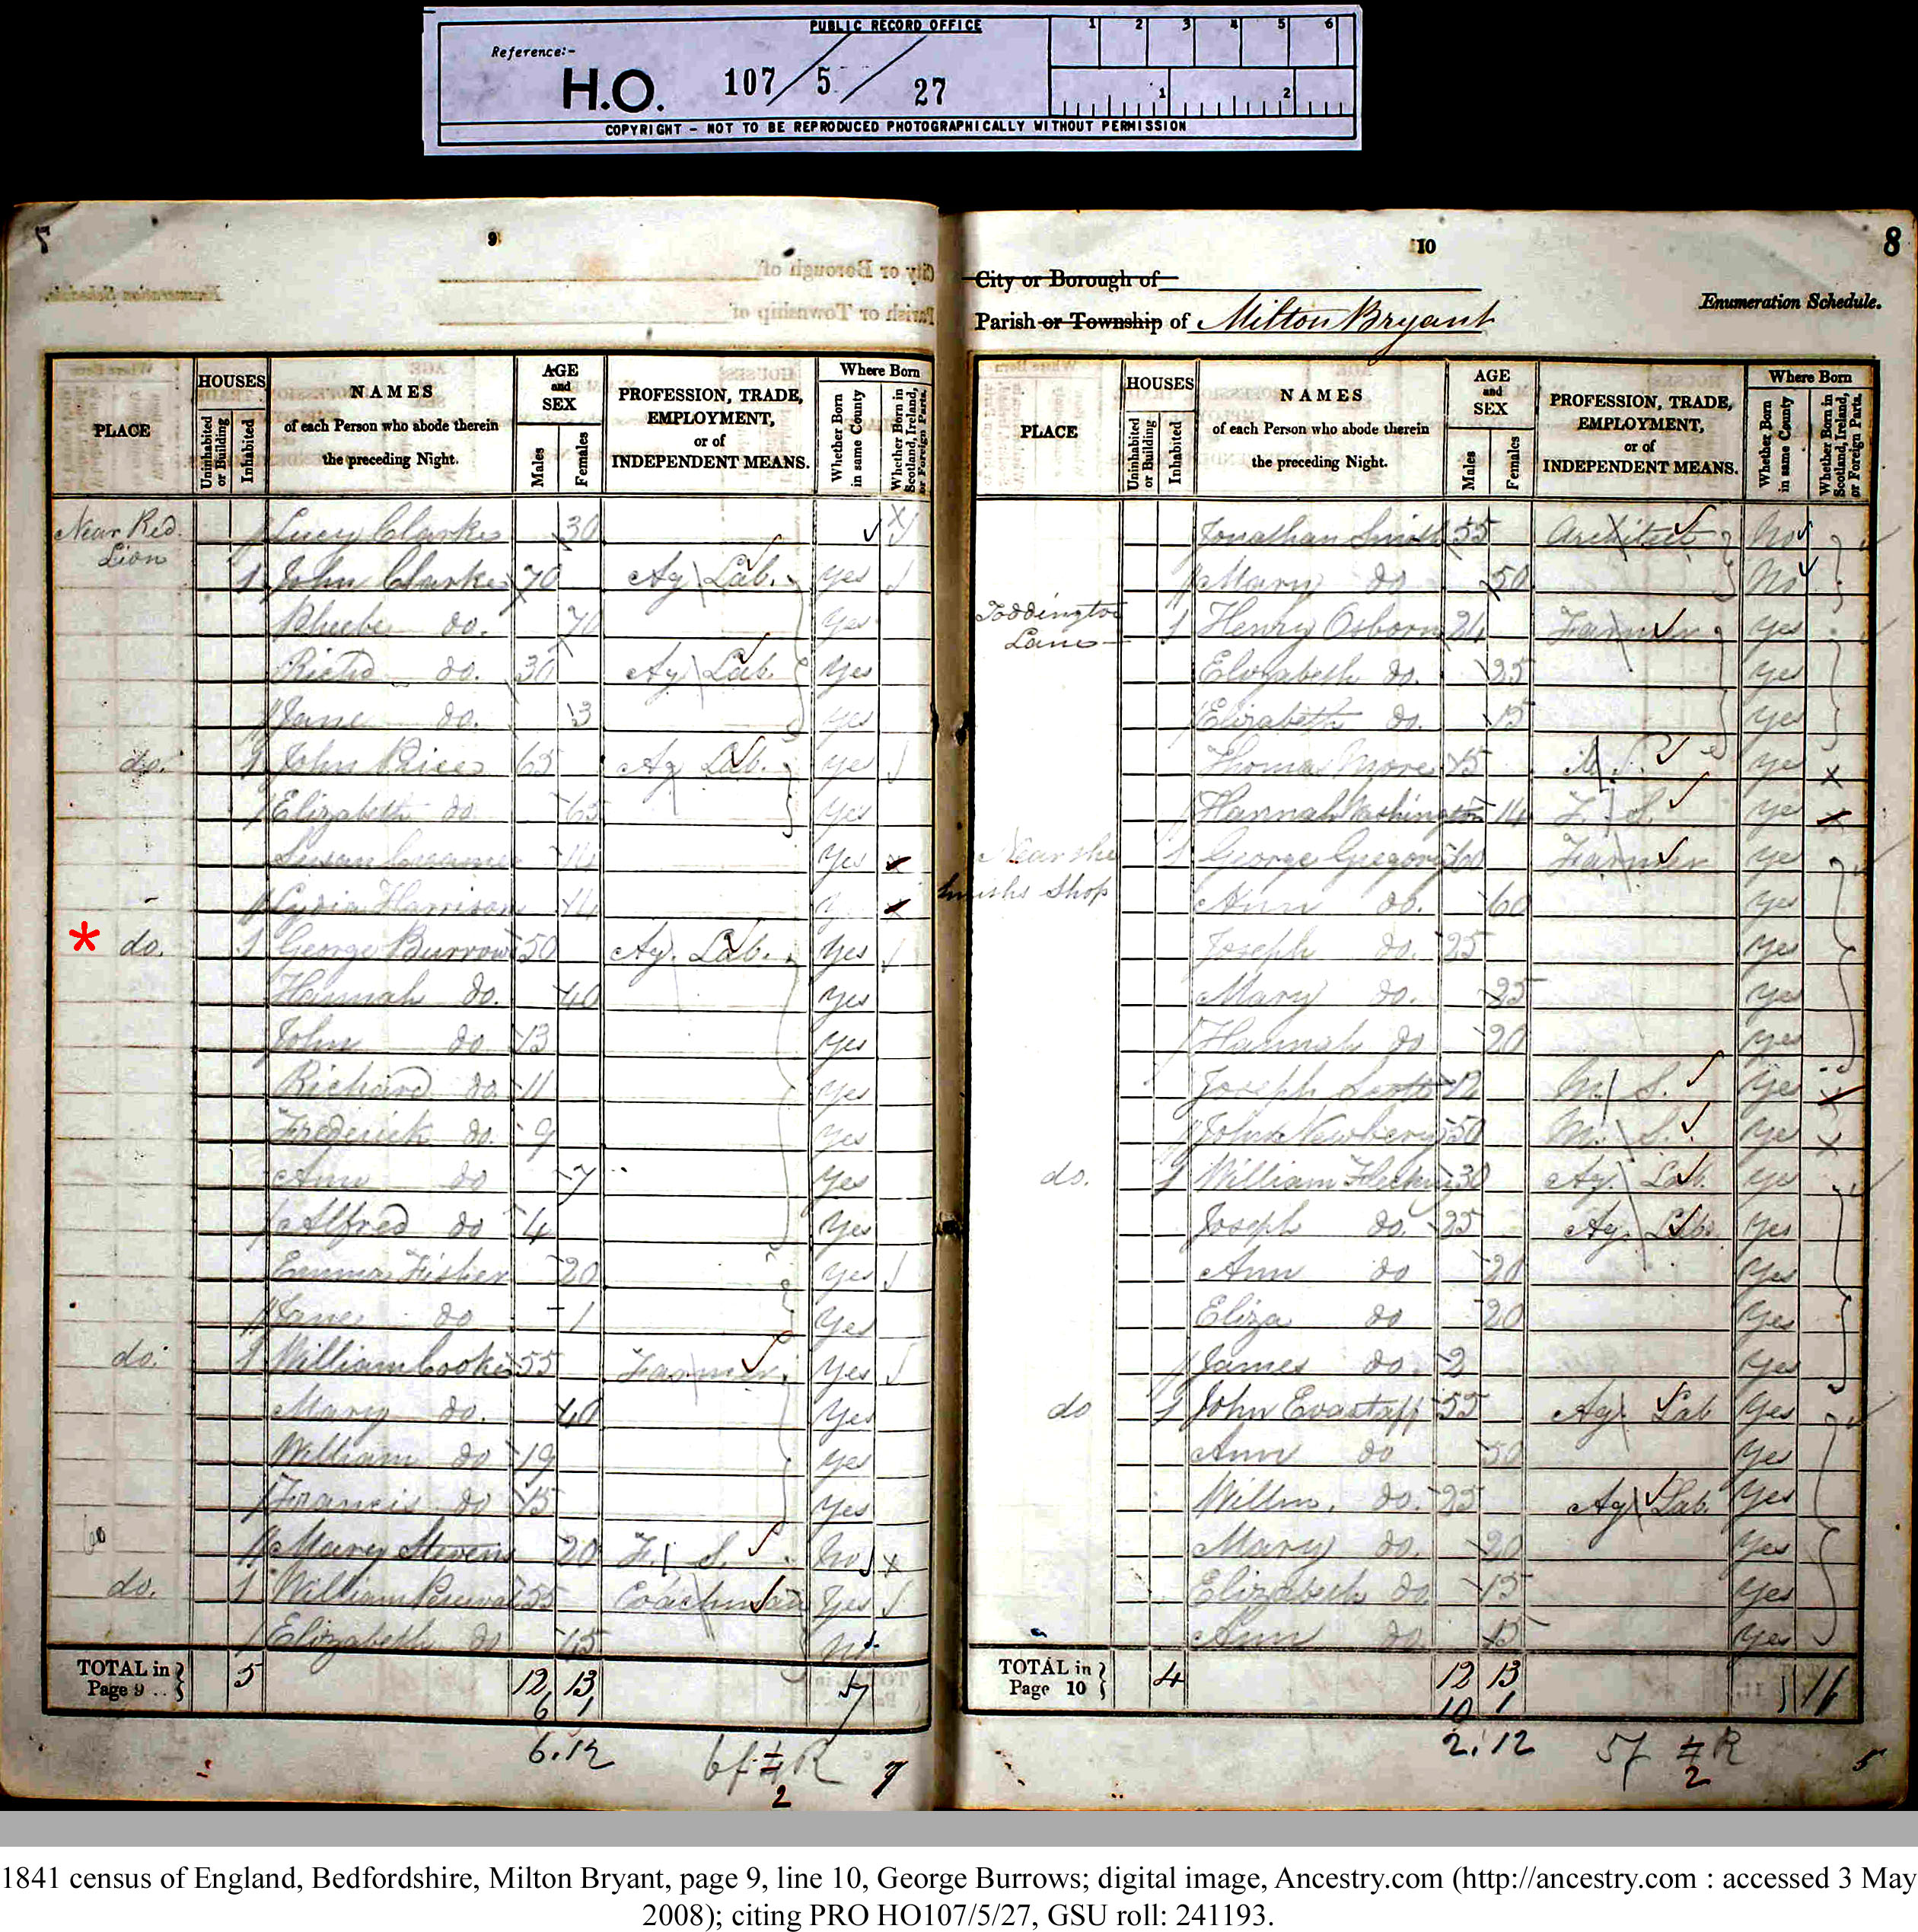 PUBLIC RECORD OFFICE
1 2 3 4 5 6
Reference:-
H.O. 107/5/27
1 2
COPYRIGHT - NOT TO BE REPRODUCED PHOTOGRAPHICALLY WITHOUT PERMISSION
7
9
PLACE
HOUSES
Uninhabited or Building
Inhabited
NAMES
of each Person who abode therein
the preceding Night.
AGE
and
SEX
Males
Females
PROFESSION, TRADE,
EMPLOYMENT,
or of
INDEPENDENT MEANS.
Where Born
Whether Born in same County
Whether Born in Scotland, Ireland, or Foreign Parts.
Near Red Lucy Clarke 30
Lion 1 John Clarke 70 Ag Lab. Yes
Phoebe do. 70 Yes
Richd do. 30 Ag Lab. Yes
Jane do. 13 Yes
do. 1 John 65 Ag Lab. Yes
Elizabeth do 65 Yes
Susan 14 Yes
Lydia Harrison 14
* do. 1 George Burrows 50 Ag. Lab. Yes
Hannah do. 40 Yes
John do 13 Yes
Richard do. 11 Yes
Frederick do. 9 Yes
Ann do 7 Yes
Alfred do 4 Yes
Emma Fisher 20 Yes
Jane do 1 Yes
do. 1 William Cooke 55 Farmer Yes
Mary do. 40 Yes
William do 19 Yes
Francis do 15 Yes
Mary Stevens 20 F. S. No
do. 1 William 55 Coachman Yes
Elizabeth do 45 No
TOTAL in
Page 9 .. 5 12 13
6 1
6.12
2
7
10
8
City or Borough of
Parish or Township of Milton Bryant
Enumeration Schedule.
PLACE
HOUSES
Uninhabited or Building
Inhabited
NAMES
of each Person who abode therein
the preceding Night.
AGE
and
SEX
Males
Females
PROFESSION, TRADE,
EMPLOYMENT,
or of
INDEPENDENT MEANS.
Where Born
Whether Born in same County
Whether Born in Scotland, Ireland, or Foreign Parts.
Jonathan Smith 55 Architect No
Mary do 50 No
Toddington 1 Henry Osborn 24 Farmer Yes
Lane Elizabeth do. 25 Yes
Elizabeth do. 15 Yes
Thomas More 15 M. S. Yes
Hannah Washington 14 F. S. Ye
Near the 1 George Gregory 60 Farmer Ye
Smiths Shop Ann do. 60 Yes
Joseph do. 25 Yes
Mary do. 25 Yes
Hannah do 20 Yes
Joseph Scott 12 M. S. Yes
John Newbery 50 M. S. Ye
do. 1 William 30 Ag. Lab. Ye
Joseph do. 25 Ag. Lab. Yes
Ann do 20 Yes
Eliza do 20 Yes
James do. 2 Yes
do 1 John Evastaff 55 Ag. Lab Yes
Ann do 50 Yes
Willm. do. 25 Ag Lab. Yes
Mary do. 20 Yes
Elizabeth do 15 Yes
Ann do 15 Yes
TOTAL in
Page 10 4 12 13
10 1
2.12
2
1841 census of England, Bedfordshire, Milton Bryant, page 9, line 10, George Burrows; digital image, Ancestry.com (http://ancestry.com : accessed 3 May
2008); citing PRO HO107/5/27, GSU roll: 241193.